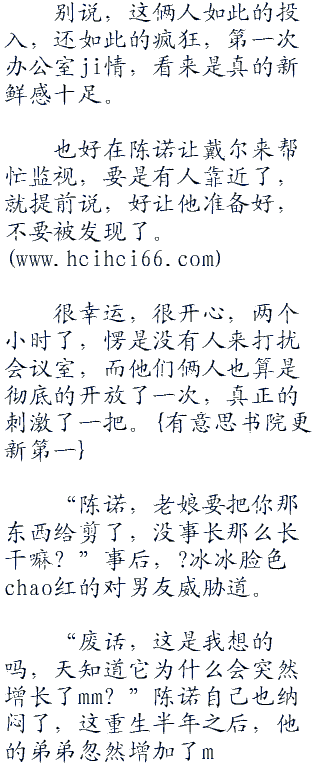 别说，这俩人如此的投
入，还如此的疯狂，第一次
办公室ji情，看来是真的新
鲜感十足。
也好在陈诺让戴尔来帮
忙监视，要是有人靠近了，
就提前说，好让他准备好，
不要被发现了。
(www.hcihci66.com)
很幸运，很开心，两个
小时了，愣是没有人来打扰
会议室，而他们俩人也算是
彻底的开放了一次，真正的
刺激了一把。{有意思书院更
新第一}
“陈诺，老娘要把你那
东西给剪了，没事长那么长
干嘛？”事后，?冰冰脸色
chao红的对男友威胁道。
“废话，这是我想的
吗，天知道它为什么会突然
增长了mm？”陈诺自己也纳
闷了，这重生半年之后，他
的弟弟忽然增加了m